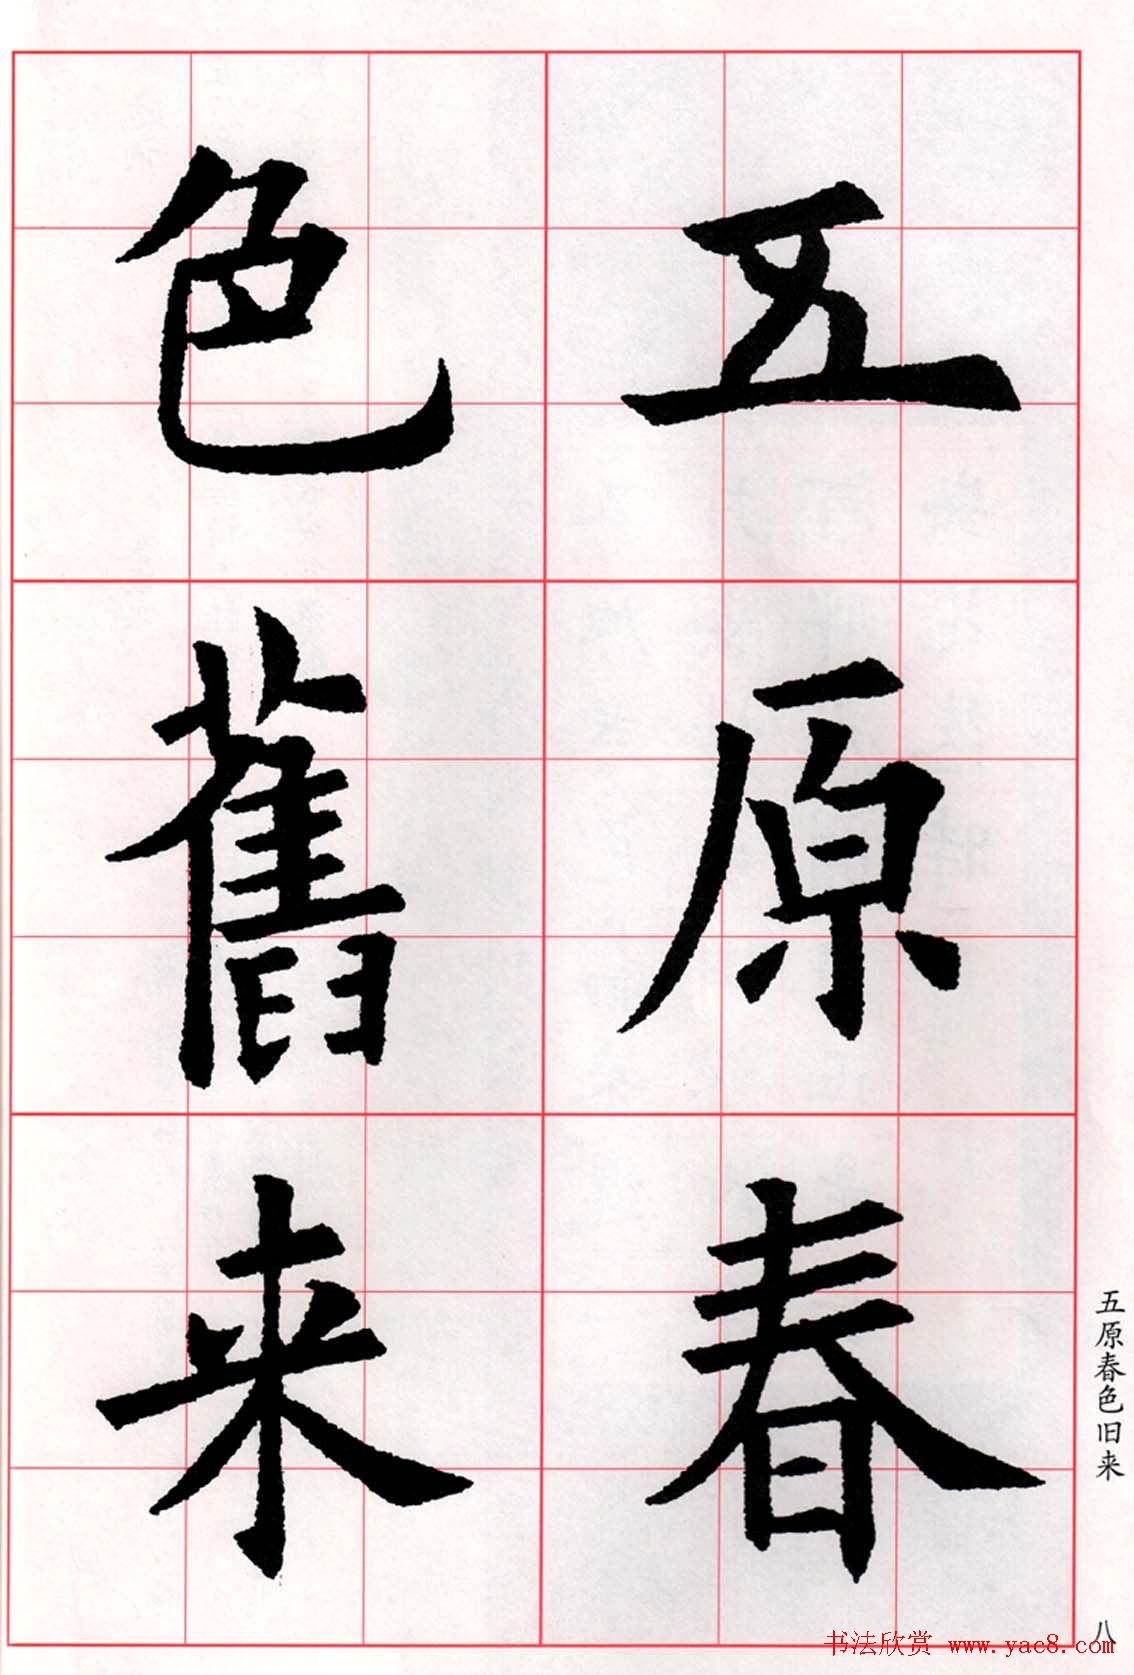 五原春
色舊来
五原春色旧来
八
书法欣赏 www.yac8.com